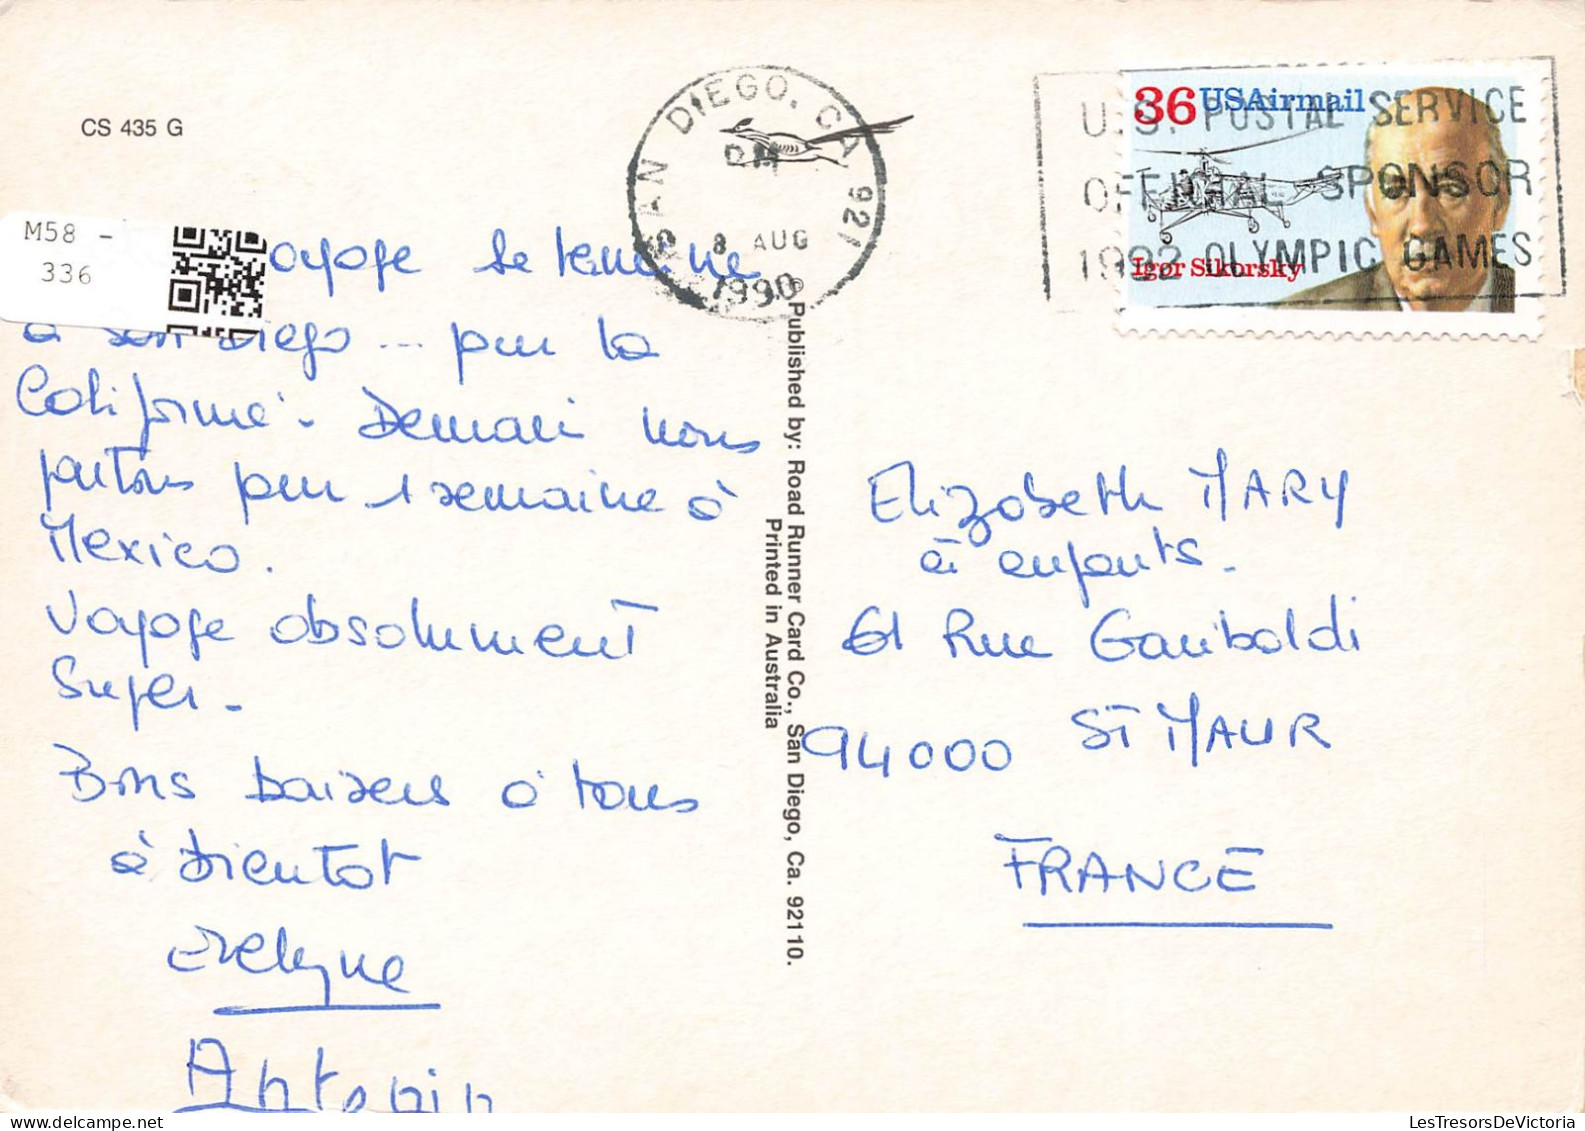 CS 435 G
M58 -
336
SAN DIEGO, CA 921
PM
8 AUG
1990
U.S. POSTAL SERVICE
OFFICIAL SPONSOR
1992 OLYMPIC GAMES
36 USAirmail
Igor Sikorsky
voyage se termine
à San Diego ... pour la
Californie. Demain nous
partons pour 1 semaine à
Mexico.
Voyage absolument
Super.
Bons baisers à tous
à bientot
Evelyne
Antonin
© Published by: Road Runner Card Co., San Diego, Ca. 92110.
Printed in Australia
Elizabeth MARY
& enfants.
61 Rue Garibaldi
94000 ST MAUR
FRANCE
LesTresorsDeVictoria.com